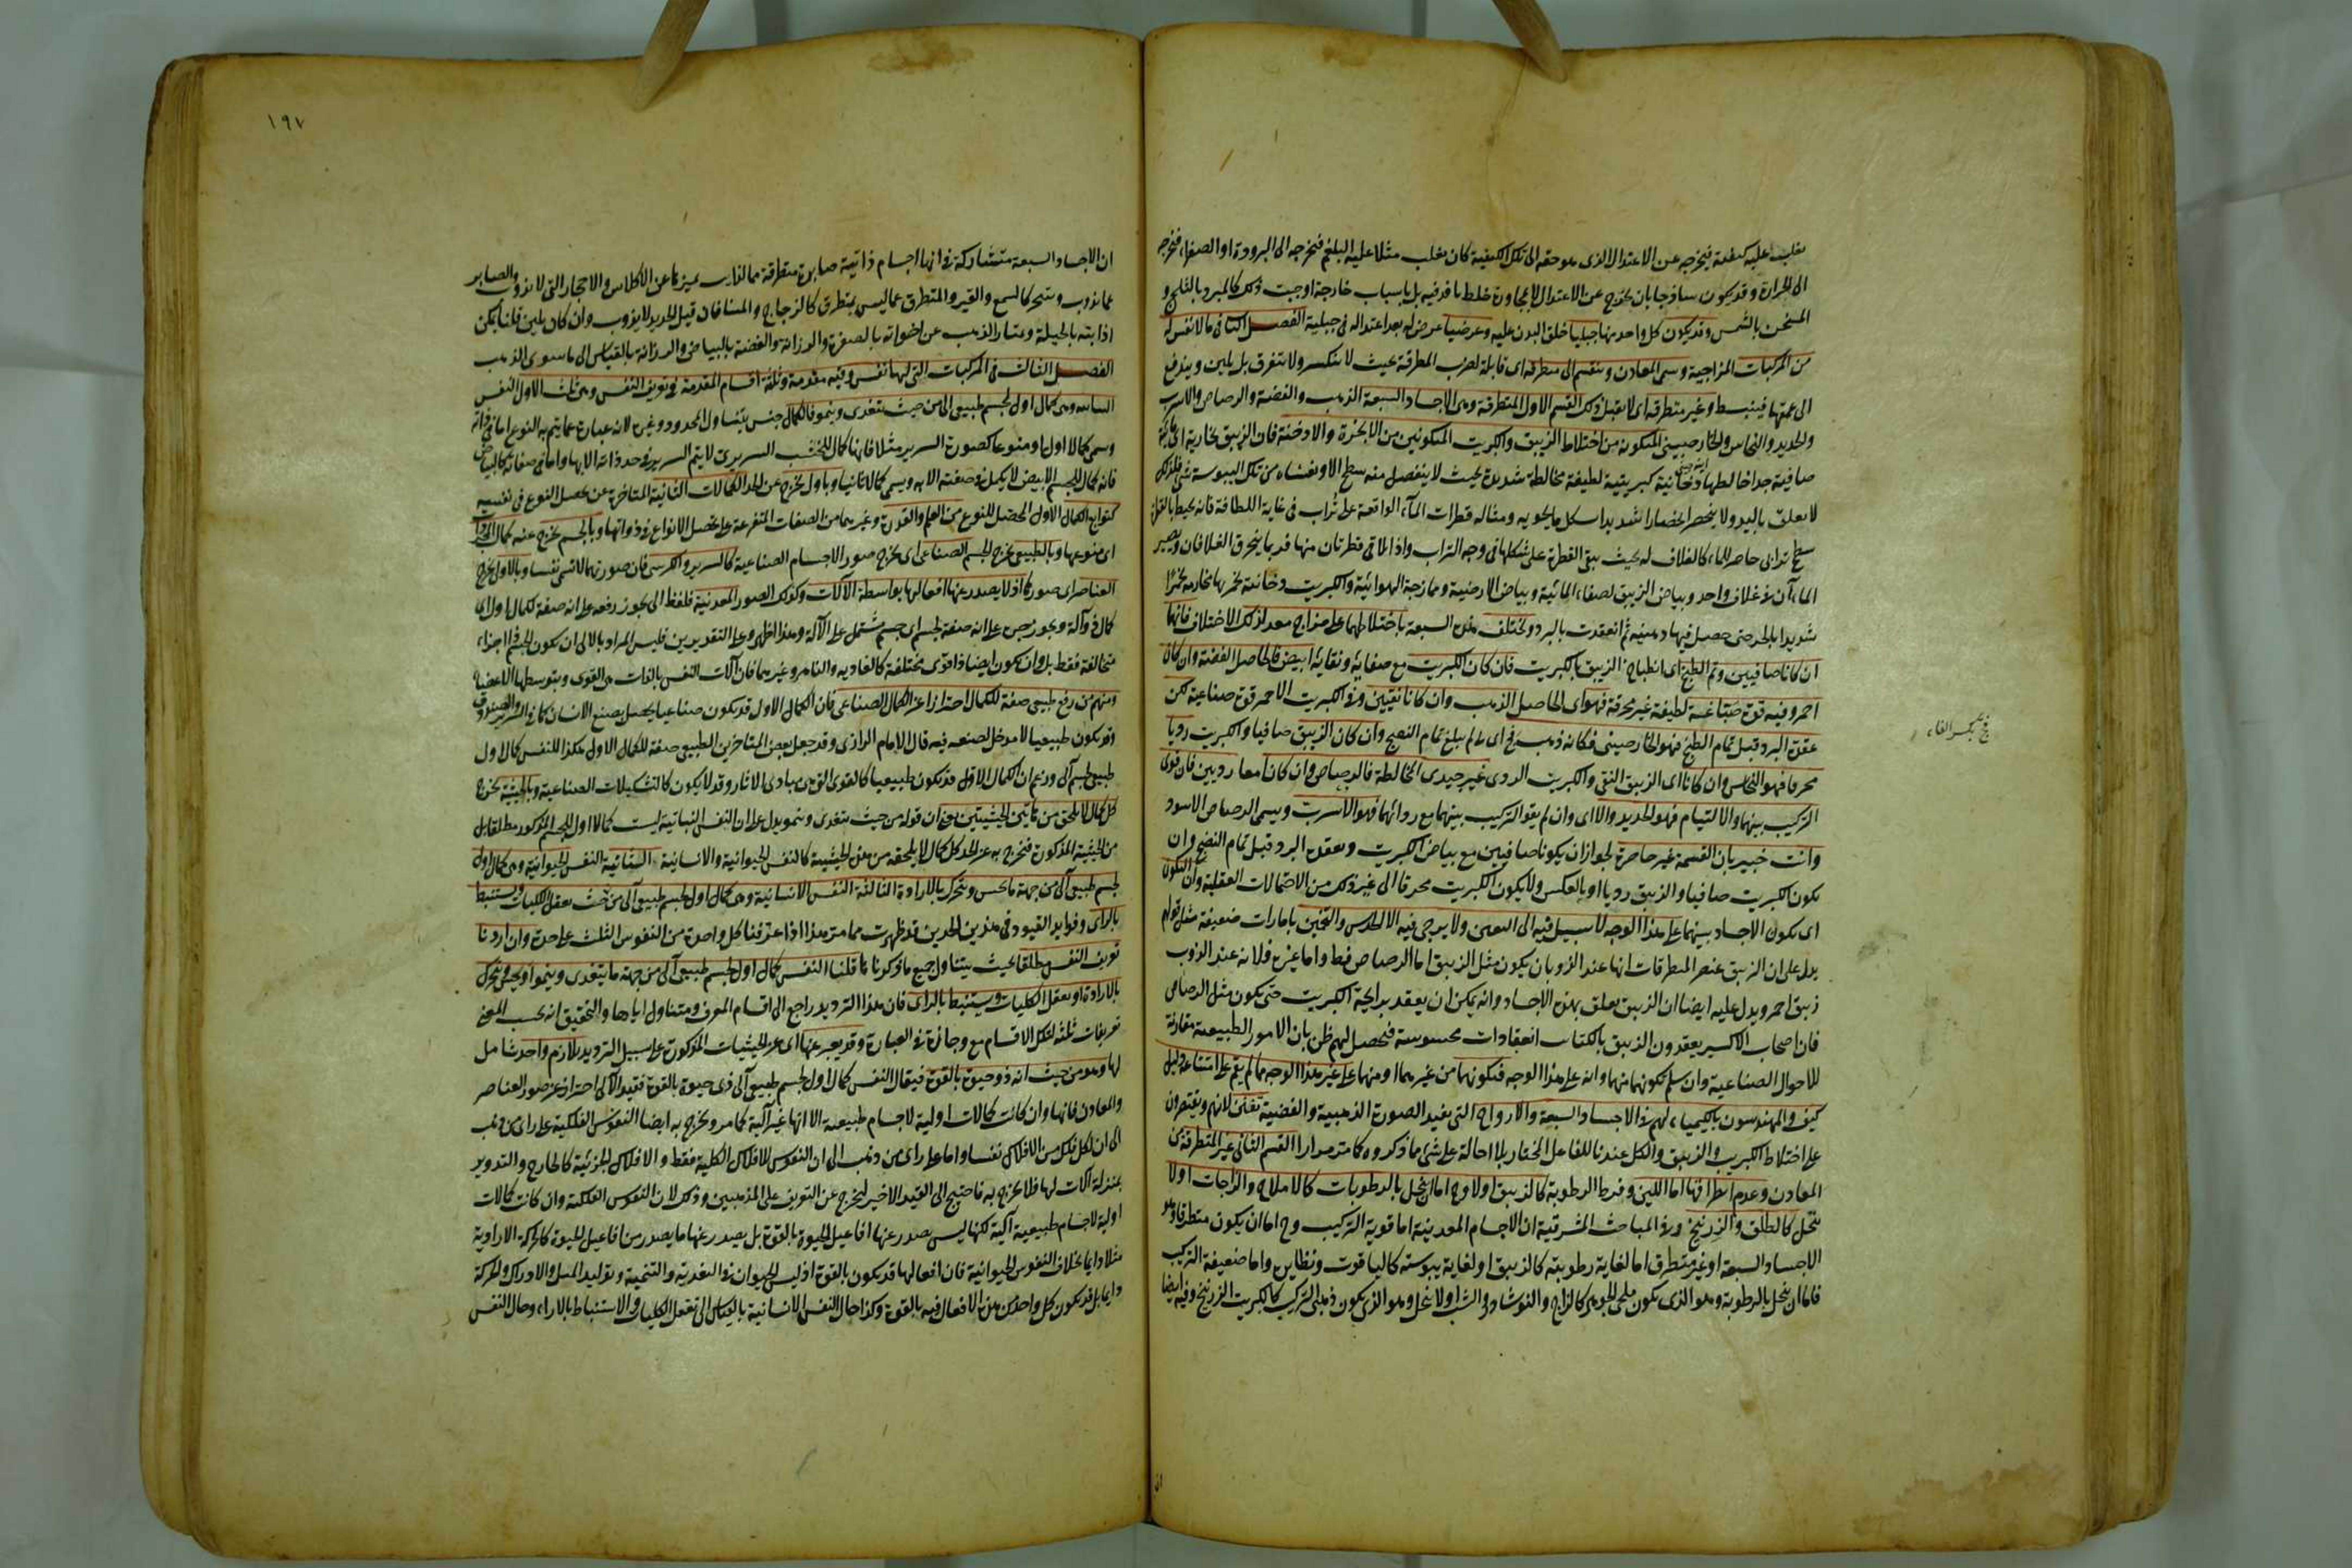 يغلب عليه كيفية فيخرجه عن الاعتدال الذى هو حقه الى تلك الكيفية كان يغلب مثلا عليه البلغم فيخرجه الى البرودة او الصفراء فيخرجه
الى الحرارة وقد يكون ساذجا بان يخرج عن الاعتدال لا بمجاورة خلط نافذ فيه بل باسباب خارجة اوجبت ذلك كالمبرد بالثلج و
المسخن بالشمس وقد يكون كل واحد منها جبليا خلق البدن عليه وعرضيا عرض له بعد اعتداله فى جبلته الفصل الثانى فيما لا نفس له
من المركبات المزاجية وسمى المعادن وينقسم الى متطرقة اى قابلة لضرب المطرقة بحيث لا ينكسر ولا يتفرق بل يلين ويندفع
الى عمقها فينبسط وغير متطرقة اى لا يقبل ذلك القسم الاول المتطرقة وهى الاجساد السبعة الذهب والفضة والرصاص والاسرب
والحديد والنحاس والخارصينى المتكونة من اختلاط الزيبق والكبريت المتكونين من الابخرة والادخنة فان الزيبق بخارية اى مائية
صافية جدا خالطها دخانية كبريتية لطيفة مخالطة شديدة بحيث لا ينفصل منه سطح الا ويغشاه من تلك اليبوسة شىء فلذلك
لا يعلق باليد ولا ينحصر انحصارا شديدا بشكل ما يحويه ومثاله قطرات الماء الواقعة على تراب فى غاية اللطافة فانه يحيط بالقطرة
سطح ترابى حاصر للماء كالغلاف له بحيث يبقى القطرة على شكلها فى وجه التراب واذا تلاقى قطرتان منها فربما ينخرق الغلافان ويصير
الماءآن فى غلاف واحد وبياض الزيبق لصفاء المائية وبياض الارضية وممازجة الهوائية والكبريت دخانية تخمر بها بخارية تخمرا
شديدا بالحر حتى حصل فيها دهنية ثم انعقدت بالبرد ويختلف هذه السبعة باختلاطهما على مزاج معد لذلك الاختلاف فانهما
ان كانا صافيين وتم الطبخ اى انطباخ الزيبق بالكبريت فان كان الكبريت مع صفائه ونقائه ابيض فالحاصل الفضة وان كان
احمر وفيه قوة صباغة لطيفة غير محرقة فهو اى الحاصل الذهب وان كانا نقيين وفى الكبريت الاحمر قوة صباغية لكن
عقده البرد قبل تمام الطبخ فهو الخارصينى فكانه ذهب فج اى لم يبلغ تمام النضج وان كان الزيبق صافيا والكبريت رديا
محرقا فهو النحاس وان كانا اى الزيبق النقى والكبريت الردى غير جيدى المخالطة فالرصاص وان كانا معا رديين فان قوى
التركيب بينهما والالتيام فهو الحديد والا اى وان لم يقو التركيب بينهما مع ردائتهما فهو الاسرب ويسمى الرصاص الاسود
وانت خبير بان القسمة غير حاصرة لجواز ان يكونا صافيين مع بياض الكبريت ويعقده البرد قبل تمام النضج وان
يكون الكبريت صافيا والزيبق رديا او بالعكس ولا يكون الكبريت محرقا الى غير ذلك من الاحتمالات العقلية وان التكون
اى تكون الاجساد بينهما على هذا الوجه لا سبيل فيه الى اليقين ولا يرجى فيه الا الحدس والتخمين بامارات ضعيفة مثل قولهم
يدل على ان الزيبق عنصر المتطرقات انها عند الذوبان يكون مثل الزيبق اما الرصاص فظ واما غيره فلانه عند الذوب
زيبق احمر ويدل عليه ايضا ان الزيبق يعلق بهذه الاجساد وانه يمكن ان يعقد برايحة الكبريت حتى يكون مثل الرصاص
فان اصحاب الاكسير يعقدون الزيبق بالكتاب انعقادات محسوسة فيحصل لهم ظن بان الامور الطبيعية مقارنة
للاحوال الصناعية وان سلم تكونها منهما وانه على هذا الوجه فتكونها من غيرهما او منهما على غير هذا الوجه مما لم يقم على امتناعه دليل
كيف والمهوسون بالكيمياء لهم فى الاجساد السبعة والارواح التى يفيد الصورة الذهبية والفضية تفنن لانهم ويقتصرون
على اختلاط الكبريت والزيبق والكل عندنا للفاعل المختار بلا احالة على شىء مما ذكروه كما مر مرارا القسم الثانى غير المتطرقة من
المعادن وعدم انطراقها اما للين وفرط الرطوبة كالزيبق اولا وح اما ان ينحل بالرطوبات كالاملاح والزاجات اولا
ينحل كالطلق والزرنيخ وفى المباحث المشرقية ان الاجسام المعدنية اما قوية التركيب وح اما ان يكون متطرقا وهو
الاجساد السبعة او غير متطرق اما لغاية رطوبته كالزيبق او لغاية يبوسته كالياقوت ونظايره واما ضعيفة التركيب
فاما ان ينحل بالرطوبة وهو الذى يكون ملحى الجوهر كالزاج والنوشادر والشب اولا ينحل وهو الذى يكون دهنى التركيب كالكبريت والزرنيخ وفيه ايضا
فج بكسر الفاء
ان
١٩٧
ان الاجساد السبعة متشاركة فى انها اجسام ذائبة صابرة متطرقة فالذائب يميزها عن الاكلاس والاحجار التى لا يذوب والصابر
عما يذوب ويتبخر كالشمع والقير والمتطرق عما ليس بمتطرق كالزجاج والمينا فان قيل الحديد لا يذوب وان كان يلين قلنا يمكن
اذابته بالحيلة ويمتاز الذهب عن اخواته بالصفرة والرزانة والفضة بالبياض والرزانة بالقياس الى ما سوى الذهب
الفصل الثالث فى المركبات التى لها نفس وفيه مقدمة وثلثة اقسام المقدمة فى تعريف النفس وهى ثلث الاول النفس
النباتية وهى كمال اول لجسم طبيعى الى من حيث يتغدى وينمو فالكمال جنس يتناول المحدود وغيره لانه عبارة عما يتم به النوع اما فى ذاته
وسمى كمالا اول ومنوعا كصورة السرير مثلا فانها كمال للخشب السريرى لا يتم السرير فى حد ذاته الا بها واما فى صفاته كالبياض
فانه كمال للجسم الابيض لا يكمل فى صفته الا به ويسمى كمالا ثانيا وباول يخرج عن الحد الكمالات الثانية المتاخرة عن تحصل النوع فى نفسه
كتوابع الكمال الاول المحصل للنوع من العلم والقدرة وغيرهما من الصفات المتفرعة على تحصل الانواع فى ذواتها وبالجسم يخرج عنه كمال المجردات
اى منوعها وبالطبيعى يخرج الجسم الصناعى اى يخرج صور الاجسام الصناعية كالسرير والكرسى فان صورتهما لا تسمى نفسا وبالالى يخرج
العناصر اى صورها اذ لا يصدر عنها افعالها بواسطة الآلات وكذلك الصور المعدنية فلفظ الى يجوز رفعه على انه صفة لكمال اول اى
كمال ذو آلة ويجوز جره على انه صفة لجسم اى جسم مشتمل على الآلة وهذا اظهر وعلى التقديرين فليس المراد بالالى ان يكون الجسم ذا اجزاء
متخالفة فقط بل وان يكون ايضا ذا قوى مختلفة كالغاديه والناميه وغيرهما فان آلات النفس بالذات هى القوى وبتوسطها الاعضاء
ومنهم من رفع طبيعى صفة للكمال احترازا عن الكمال الصناعى فان الكمال الاول قد يكون صناعيا يحصل بصنع الانسان كما فى السرير والصندوق
وقد يكون طبيعيا لا مدخل لصنعه فيه قال الامام الرازى وقد جعل بعض المتاخرين الطبيعى صفة للكمال الاول هكذا النفس كمال اول
طبيعى لجسم آلى وزعم ان الكمال الاول قد يكون طبيعيا كالقوى التى هى مبادى الاثار وقد لا يكون كالتشكيلات الصناعية وبالحيثية يخرج
كل كمال لا يلحق من هاتين الحيثيتين يعنى ان قوله من حيث يتغدى وينمو يدل على ان النفس النباتية ليست كمالا اول للجسم المذكور مطلقا بل
من الحيثية المذكورة فيخرج به عن الحد كل كمال لا يلحقه من هذه الحيثية كالنفس الحيوانية والانسانية الثانية النفس الحيوانية وهى كمال اول
لجسم طبيعى آلى من جهة ما يحس ويتحرك بالارادة الثالثة النفس الانسانية وهى كمال اول لجسم طبيعى آلى من حيث يعقل الكليات ويستنبط
بالراى وفوايد القيود فى هذين الحدين قد ظهرت مما مر هذا اذا عرفنا كل واحدة من النفوس الثلث على حدة وان اردنا
تعريف النفس مطلقا بحيث يتناول جميع ما ذكرناها قلنا النفس كمال اول لجسم طبيعى آلى من جهة ما يتغدى وينمو او يحس ويتحرك
بالارادة او يعقل الكليات ويستنبط بالراى فان هذا الترديد راجع الى اقسام المعرف ومتناول اياها والتحقيق انه بحسب المعنى
تعريفات ثلثة لتلك الاقسام مع وجازة فى العبارة وقد يعبر عنها اى عن الحيثيات المذكورة على سبيل الترديد بلازم واحد شامل
لها وهو من حيث انه ذو حيوة بالقوة فيقال النفس كمال اول لجسم طبيعى آلى ذى حيوة بالقوة فقيد الالى احتراز عن صور العناصر
والمعادن فانها وان كانت كمالات اولية لاجسام طبيعية الا انها غير آلية كما مر ويخرج به ايضا النفوس الفلكية على راى من ذهب
الى ان لكل فلك من الافلاك نفسا واما على راى من ذهب الى ان النفوس للافلاك الكلية فقط والافلاك الجزئية كالخارج والتدوير
بمنزلة آلات لها فلا يخرج به فاحتيج الى القيد الاخير ليخرج عن التعريف على المذهبين وذلك لان النفوس الفلكية وان كانت كمالات
اولية لاجسام طبيعية آلية لكنها ليس يصدر عنها افاعيل الحيوة بالقوة بل يصدر عنها ما يصدر من افاعيل الحيوة كالحركة الارادية
مثلا دايما بخلاف النفوس الحيوانية فان افعالها قد يكون بالقوة اذ ليس الحيوان فى التغدية والتنمية وتوليد المثل والادراك والحركة
دايما بل قد يكون كل واحد من هذه الافعال فيه بالقوة وكذا حال النفس الانسانية بالقياس الى تعقل الكليات والاستنباط بالاراء وحال النفس